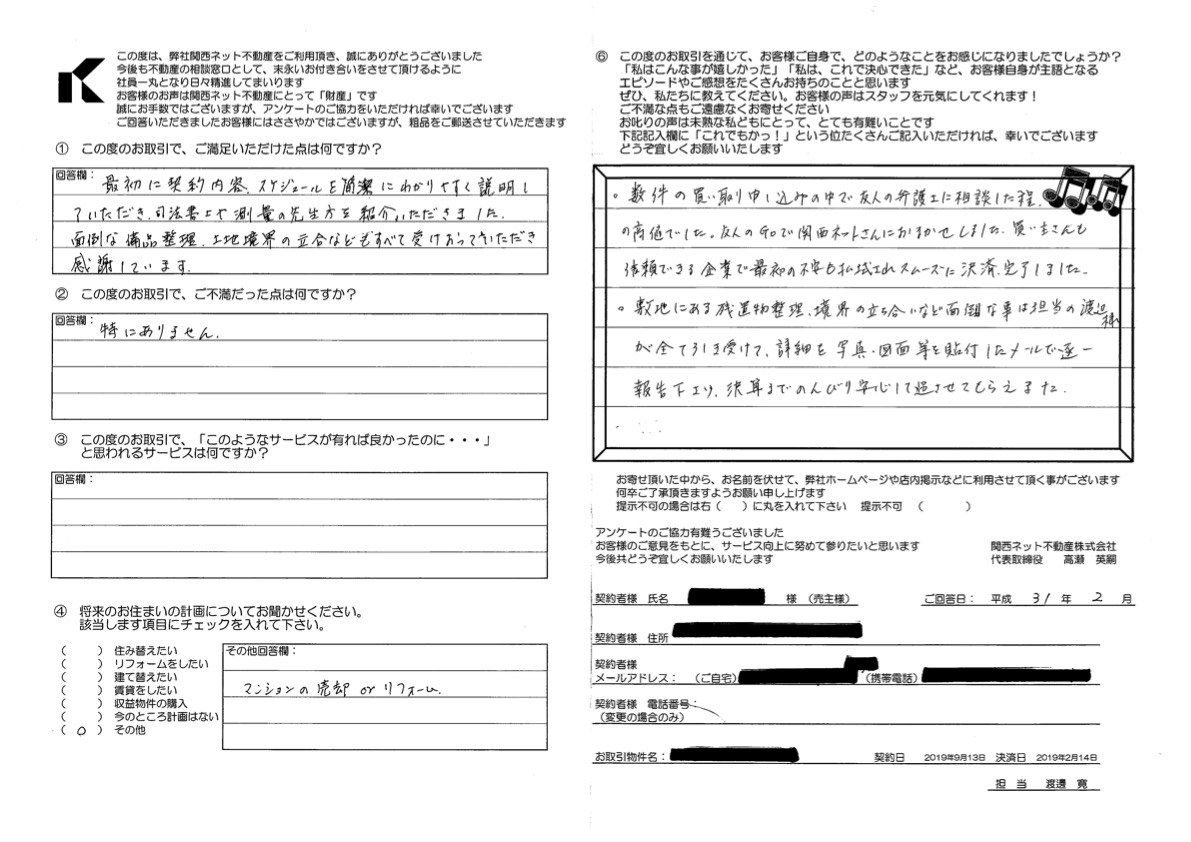 この度は、弊社関西ネット不動産をご利用頂き、誠にありがとうございました
今後も不動産の相談窓口として、末永いお付き合いをさせて頂けるように
社員一丸となり日々精進してまいります
お客様のお声は関西ネット不動産にとって「財産」です
誠にお手数ではございますが、アンケートのご協力をいただければ幸いでございます
ご回答いただきましたお客様にはささやかではございますが、粗品をご郵送させていただきます
① この度のお取引で、ご満足いただけた点は何ですか？
回答欄：
最初に契約内容、スケジュールを簡潔にわかりやすく説明し
ていただき、司法書士や測量の先生方を紹介いただきました。
面倒な備品整理、土地境界の立合などもすべて受けおっていただき
感謝しています。
② この度のお取引で、ご不満だった点は何ですか？
回答欄：
特にありません。
③ この度のお取引で、「このようなサービスが有れば良かったのに・・・」
と思われるサービスは何ですか？
回答欄：
④ 将来のお住まいの計画についてお聞かせください。
該当します項目にチェックを入れて下さい。
（ ） 住み替えたい
（ ） リフォームをしたい
（ ） 建て替えたい
（ ） 賃貸をしたい
（ ） 収益物件の購入
（ ） 今のところ計画はない
（ ○ ） その他
その他回答欄：
マンションの売却 or リフォーム。
⑥ この度のお取引を通じて、お客様ご自身で、どのようなことをお感じになりましたでしょうか？
「私はこんな事が嬉しかった」「私は、これで決心できた」など、お客様自身が主語となる
エピソードやご感想をたくさんお持ちのことと思います
ぜひ、私たちに教えてください。お客様の声はスタッフを元気にしてくれます！
ご不満な点もご遠慮なくお寄せください
お叱りの声は未熟な私どもにとって、とても有難いことです
下記記入欄に「これでもかっ！」という位たくさんご記入いただければ、幸いでございます
どうぞ宜しくお願いいたします
。数件の買い取り申し込みの中で友人の弁護士に相談した程、
の高値でした。友人のGoで関西ネットさんにおまかせしました。買い主さんも
信頼できる企業で最初の不安も払拭されスムーズに決済、完了しました。
。敷地にある残置物整理、境界の立ち合いなど面倒な事は担当の渡辺様
が全て引き受けて、詳細を写真・図面等を貼付したメールで逐一
報告下さり、決算までのんびり安心して過させてもらえました。
お寄せ頂いた中から、お名前を伏せて、弊社ホームページや店内掲示などに利用させて頂く事がございます
何卒ご了承頂きますようお願い申し上げます
提示不可の場合は右（ ）に丸を入れて下さい 提示不可 （ ）
アンケートのご協力有難うございました
お客様のご意見をもとに、サービス向上に努めて参りたいと思います
今後共どうぞ宜しくお願いいたします
関西ネット不動産株式会社
代表取締役 高瀬 英嗣
契約者様 氏名 様 （売主様） ご回答日： 平成 31 年 2 月
契約者様 住所
契約者様
メールアドレス： （ご自宅） （携帯電話）
契約者様 電話番号：
（変更の場合のみ）
お取引物件名： 契約日 2019年9月13日 決済日 2019年2月14日
担 当 渡邊 寛